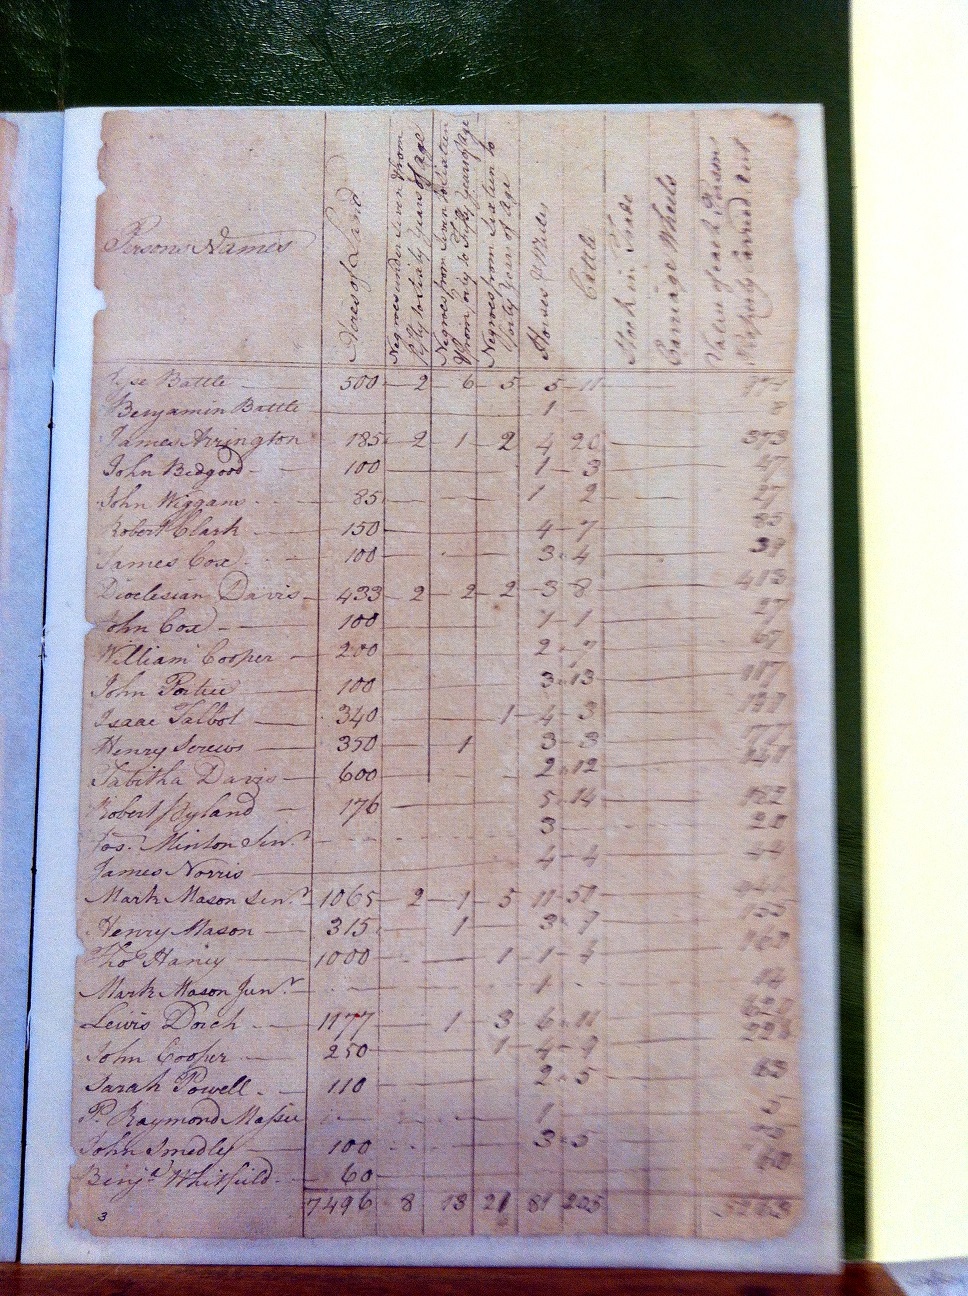 Persons Names
Acres of Land
Negroes under Seven & from fifty to Sixty years of Age
Negroes from Seven to Sixteen & from forty to Fifty years of Age
Negroes from Sixteen to forty Years of Age
Horses & Mules
Cattle
Stock in Trade
Carriage Wheels
Value of each Persons Property Carried out
Battle 500 2 6 5 5 11
Benjamin Battle 1 8
James Arrington 185 2 1 2 4 20 373
John Bedgood 100 1 3 47
John Wiggans 85 1 2
Robert Clark 150 4 7 85
James Cox 100 3 4 39
Dioclesian Davis 433 2 2 2 3 8 413
John Cox 100 1 1 27
William Cooper 200 2 7 67
John Portice 100 3 13 117
Isaac Talbot 340 1 4 3
Henry Screws 350 1 3 3
Tabitha Davis 600 2 12
Robert Ryland 176 5 14 182
Jos. Minton Senr. 3
James Norris 4 4 44
Mark Mason Senr. 1065 2 1 5 11 51
Henry Mason 315 1 3 7
Tho Haney 1000 1 1 4
Mark Mason Junr. 1 14
Lewis Dorch 1177 1 3 6 11
John Cooper 250 1 4 9
Sarah Powell 110 2 5 63
P. Raymond Massu 1
John Smedly 100 3 5
Benja Whitfield 60
7496 8 13 21 81 205
3